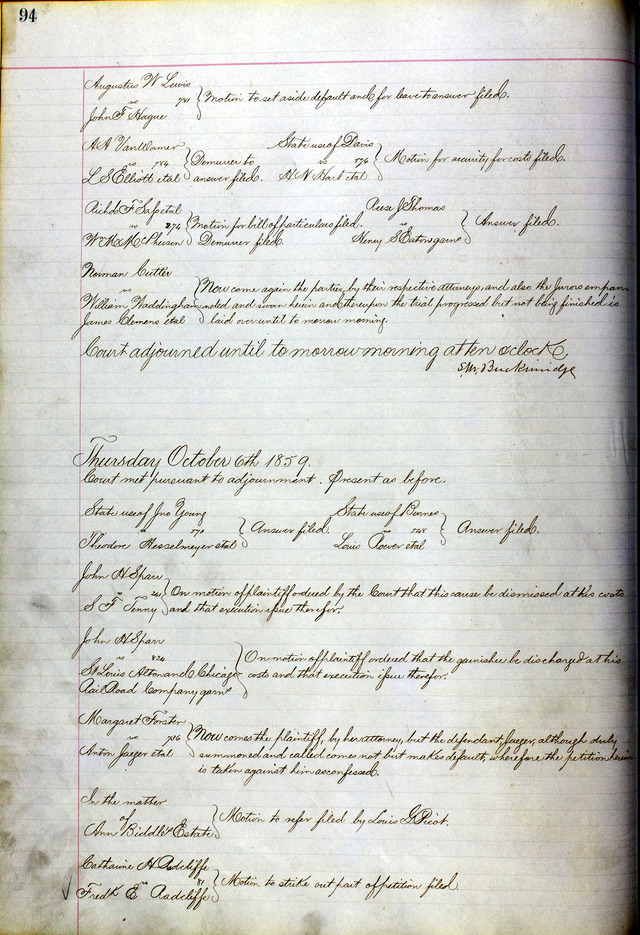 94
Augustus W Lewis
vs 781 Motion to set aside default and for leave to answer filed.
John F Hague
A A VanWormer
vs 784 Demurrer to
L S Elliott etal answer filed.
State use of Davis
vs 576 Motion for security for costs filed.
H N Hart etal
Richd F Sass etal
vs 274 Motion for bill of particulars filed.
Demurrer filed.
Reese J Thomas
vs Answer filed.
Henry S Eaton garne
Norman Cutler
vs Now come again the parties, by their respective attorneys, and also the Jurors empan
William Waddingham neled and sworn herein and thereupon the trial progressed but not being finished is
James Clemens etal laid over until to morrow morning.
Court adjourned until to morrow morning at ten oclock
Buckinridge
Thursday October 6th 1859.
Court met pursuant to adjournment. Present as before.
State use of Jno Young
vs Answer filed.
Theodore Hesselmeyer etal
State use of
vs Answer filed.
Louis etal
John H Sparr
vs 241 On motion of plaintiff ordered by the Court that this cause be dismissed at his costs
S F Tenny and that execution issue therefor.
John H Sparr
vs 824 On motion of plaintiff ordered that the garnishee be discharged at his
St Louis Alton and Chicago costs and that execution issue therefor.
Rail Road Company garne
Margaret Forster
vs 786 Now comes the plaintiff, by her attorney, but the defendant, Jaeger, although duly
Anton Jaeger etal summoned and called comes not but makes default, wherefore the petition herein
is taken against him as confessed.
In the matter
of Motion to refer filed by Louis G Picot.
Ann Biddle's Estate
Catharine H Radcliffe
vs 81 Motion to strike out part of petition filed
Fredk E Radcliffe